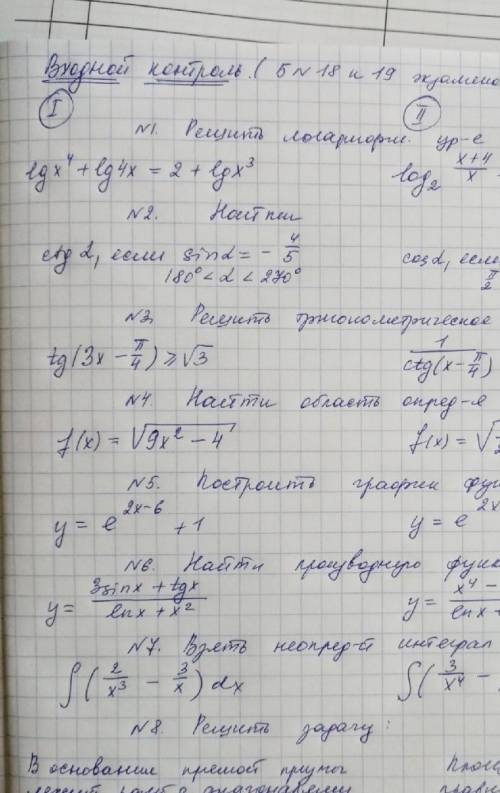 Входной контроль. ( БN18 и 19 экзамено
I II
N1. Решить логарифм. ур-е
lgx⁴ + lg4x = 2 + lgx³ log₂ (x+4)/x
N2. Найти
ctg α, если sinα = - 4/5 cosα, если
180° < α < 270° π/2
N3. Решить тригонометрическое
tg(3x - π/4) ≥ √3 1/ctg(x - π/4)
N4. Найти область опред-я
f(x) = √(9x² - 4) f(x) = √
N5. Построить график фун
y = e^(2x-6) + 1 y = e^(2x
N6. Найти производную функ
y = (3sinx + tgx)/(lnx + x²) y = (x⁴ -)/(lnx +
N7. Взять неопред-й интеграл
∫(2/x³ - 3/x) dx ∫(3/x⁴ -
N8. Решить задачу:
В основании прямой призмы
лежит ромб с диагоналями